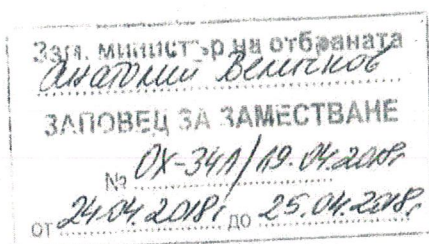 Зам. министър на отбраната
Анатолий Величков
ЗАПОВЕД ЗА ЗАМЕСТВАНЕ
№ ОХ-341/19.04.2018г.
от 24.04.2018г. до 25.04.2018г.